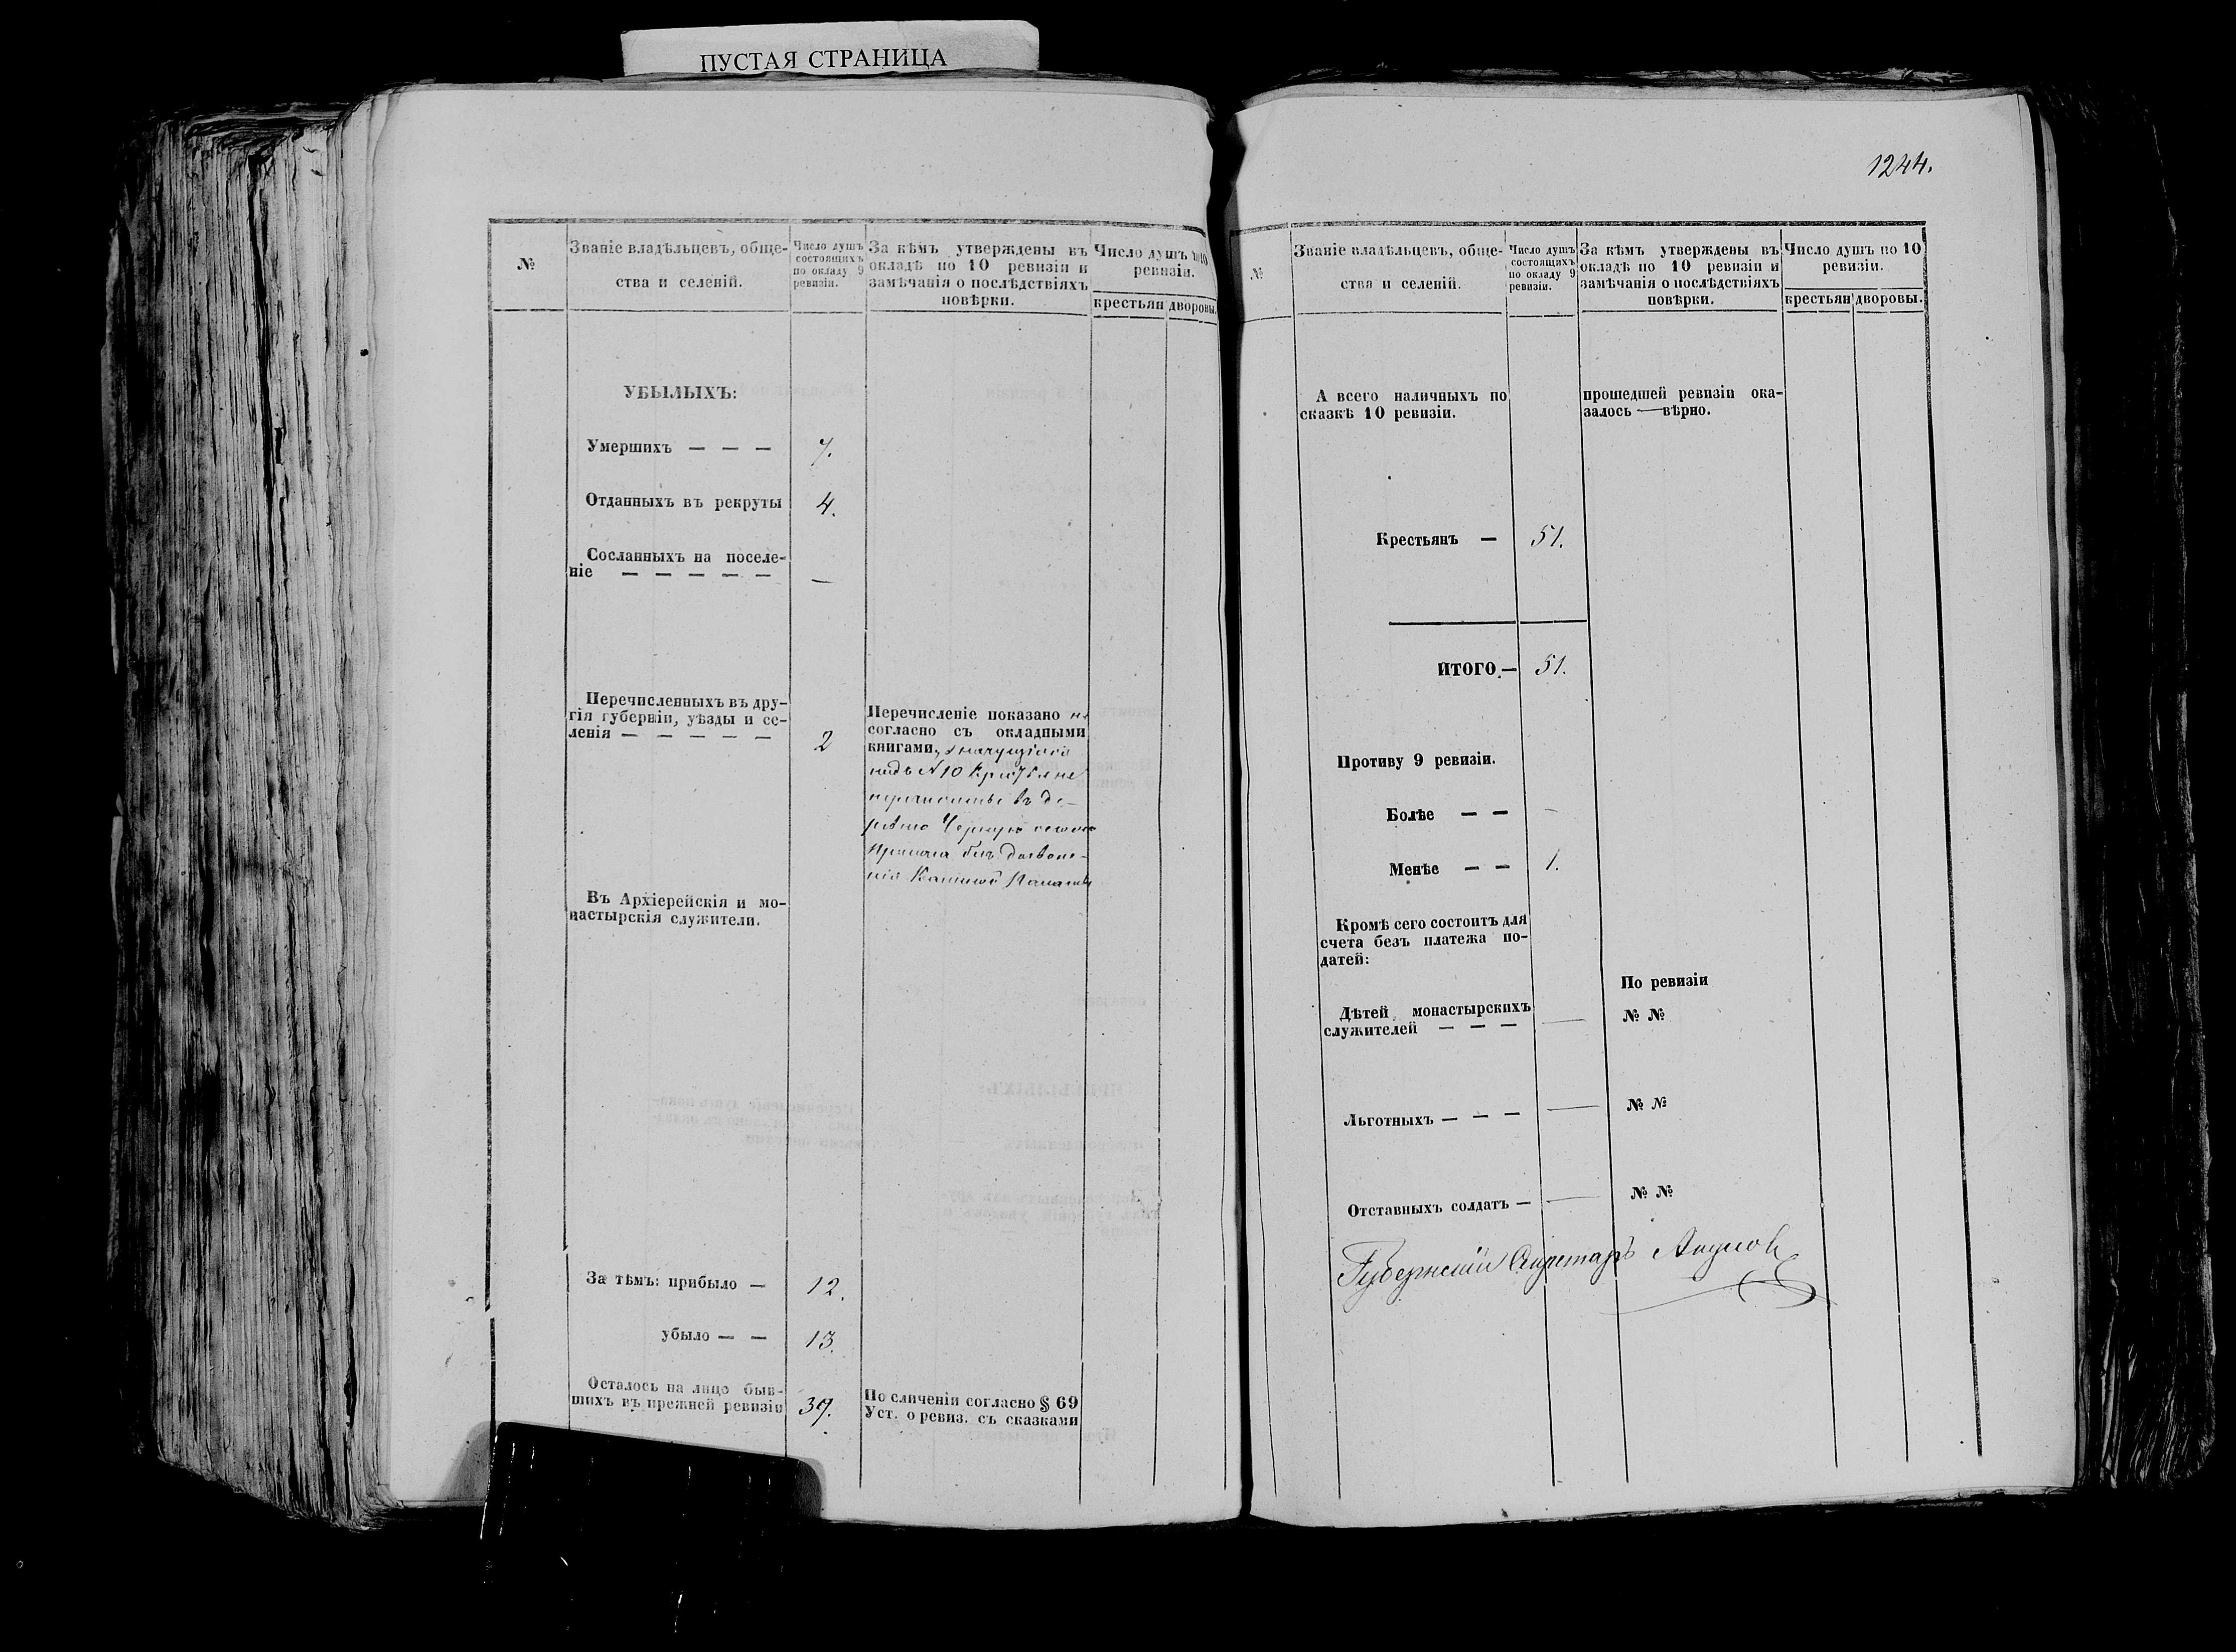 ПУСТАЯ СТРАНИЦА
№
Званіе владѣльцевъ, обще-
ства и селеній.
Число душъ
состоящихъ
по окладу 9
ревизіи.
За кѣмъ утверждены въ
окладѣ по 10 ревизіи и
замѣчанія о послѣдствіяхъ
повѣрки.
Число душъ по 10
ревизіи.
крестьян дворовы.
УБЫЛЫХЪ:
Умершихъ — — — 7.
Отданныхъ въ рекруты 4.
Сосланныхъ на поселе-
ніе — — — — — —
Перечисленныхъ въ дру-
гія губерніи, уѣзды и се-
ленія — — — — — 2
Перечисленіе показано не
согласно съ окладными
книгами,
подъ № 10 крестьяне
въ де-
ревню Черную
безъ дозволе-
нія Казенной Палаты
Въ Архіерейскія и мо-
настырскія служители.
За тѣмъ: прибыло — 12.
убыло — — 13.
Осталось на лицо быв-
шихъ въ прежней ревизіи 39.
По сличеніи согласно § 69
Уст. о ревиз. съ сказками
1244.
№
Званіе владѣльцевъ, обще-
ства и селеній.
Число душъ
состоящихъ
по окладу 9
ревизіи.
За кѣмъ утверждены въ
окладѣ по 10 ревизіи и
замѣчанія о послѣдствіяхъ
повѣрки.
Число душъ по 10
ревизіи.
крестьян дворовы.
А всего наличныхъ по
сказкѣ 10 ревизіи.
прошедшей ревизіи ока-
залось — вѣрно.
Крестьянъ — 51.
ИТОГО.— 51.
Противу 9 ревизіи.
Болѣе — — —
Менѣе — — 1.
Кромѣ сего состоитъ для
счета безъ платежа по-
датей:
По ревизіи
Дѣтей монастырскихъ
служителей — — — — № №
Льготныхъ — — — — № №
Отставныхъ солдатъ — — № №
Губернскій Секретарь